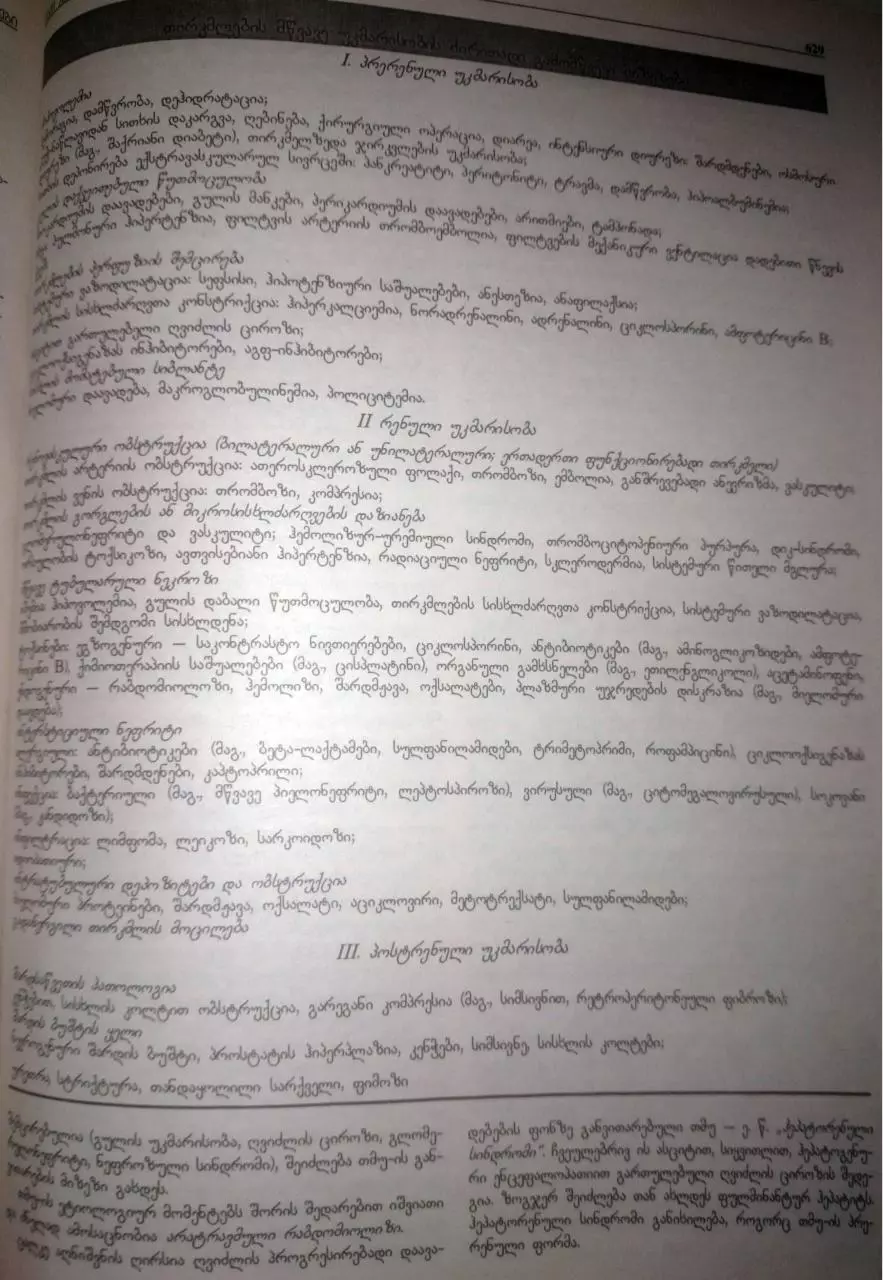 629
თირკმლების მწვავე უკმარისობის ძირითადი გამომწვევი
I. პრერენული უკმარისობა
დამწვრობა, დეჰიდრატაცია;
სითხის დაკარგვა, ღებინება, ქირურგიული ოპერაცია, დიარეა, ინტენსიური დიურეზი: შარდმდენები, ოსმოსური
(მაგ., შაქრიანი დიაბეტი), თირკმელზედა ჯირკვლების უკმარისობა;
ექსტრავასკულარულ სივრცეში: პანკრეატიტი, პერიტონიტი, ტრავმა, დამწვრობა, ჰიპოალბუმინემია;
წუთმოცულობა
დაავადებები, გულის მანკები, პერიკარდიუმის დაავადებები, არითმიები, ტამპონადა;
პულმონური ჰიპერტენზია, ფილტვის არტერიის თრომბოემბოლია, ფილტვების მექანიკური ვენტილაცია დადებითი წნევის
შემცირება
ვაზოდილატაცია: სეფსისი, ჰიპოტენზიური საშუალებები, ანესთეზია, ანაფილაქსია;
სისხლძარღვთა კონსტრიქცია: ჰიპერკალციემია, ნორადრენალინი, ადრენალინი, ციკლოსპორინი, ამფოტერიცინი B;
გართულებული ღვიძლის ციროზი;
ინჰიბიტორები, აგფ-ინჰიბიტორები;
მომატებული სიბლანტე
დაავადება, მაკროგლობულინემია, პოლიციტემია.
II რენული უკმარისობა
ობსტრუქცია (ბილატერალური ან უნილატერალური; ერთადერთი ფუნქციონირებადი თირკმელი)
არტერიის ობსტრუქცია: ათეროსკლეროზული ფოლაქი, თრომბოზი, ემბოლია, განშრევებადი ანევრიზმა, ვასკულიტი;
ვენის ობსტრუქცია: თრომბოზი, კომპრესია;
გორგლების ან მიკროსისხლძარღვების დაზიანება
და ვასკულიტი; ჰემოლიზურ-ურემიული სინდრომი, თრომბოციტოპენიური პურპურა, დიკ-სინდრომი,
ტოქსიკოზი, ავთვისებიანი ჰიპერტენზია, რადიაციული ნეფრიტი, სკლეროდერმია, სისტემური წითელი მგლურა;
ტუბულარული ნეკროზი
ჰიპოვოლემია, გულის დაბალი წუთმოცულობა, თირკმლების სისხლძარღვთა კონსტრიქცია, სისტემური ვაზოდილატაცია,
შემდგომი სისხლდენა;
ეგზოგენური — საკონტრასტო ნივთიერებები, ციკლოსპორინი, ანტიბიოტიკები (მაგ., ამინოგლიკოზიდები, ამფოტე-
B), ქიმიოთერაპიის საშუალებები (მაგ., ცისპლატინი), ორგანული გამხსნელები (მაგ., ეთილენგლიკოლი), აცეტამინოფენი,
— რაბდომიოლოზი, ჰემოლიზი, შარდმჟავა, ოქსალატები, პლაზმური უჯრედების დისკრაზია (მაგ., მიელომური
ნეფრიტი
ანტიბიოტიკები (მაგ., ბეტა-ლაქტამები, სულფანილამიდები, ტრიმეტოპრიმი, როფამპიცინი), ციკლოოქსიგენაზას
შარდმდენები, კაპტოპრილი;
ბაქტერიული (მაგ., მწვავე პიელონეფრიტი, ლეპტოსპიროზი), ვირუსული (მაგ., ციტომეგალოვირუსული), სოკოვანი
კანდიდოზი);
ლიმფომა, ლეიკოზი, სარკოიდოზი;
დეპოზიტები და ობსტრუქცია
პროტეინები, შარდმჟავა, ოქსალატი, აციკლოვირი, მეტოტრექსატი, სულფანილამიდები;
თირკმლის მოცილება
III. პოსტრენული უკმარისობა
პათოლოგია
სისხლის კოლტით ობსტრუქცია, გარეგანი კომპრესია (მაგ., სიმსივნით, რეტროპერიტონეული ფიბროზი);
ბუშტის ყელი
შარდის ბუშტი, პროსტატის ჰიპერპლაზია, კენჭები, სიმსივნე, სისხლის კოლტები;
სტრიქტურა, თანდაყოლილი სარქველი, ფიმოზი
(გულის უკმარისობა, ღვიძლის ციროზი, გლომე-
ნეფროზული სინდრომი), შეიძლება თმუ-ის გან-
მიზეზი გახდეს.
თმუ-ის ეტიოლოგიურ მომენტებს შორის შედარებით იშვიათი
ამოსაცნობია არატრავმული რაბდომიოლიზი.
აღნიშვნის ღირსია ღვიძლის პროგრესირებადი დაავა-
დებების ფონზე განვითარებული თმუ — ე. წ. „ჰეპატორენული
სინდრომი“. ჩვეულებრივ ის ასციტით, სიყვითლით, ჰეპატოგენუ-
რი ენცეფალოპათიით გართულებული ღვიძლის ციროზის შედე-
გია. ზოგჯერ შეიძლება თან ახლდეს ფულმინანტურ ჰეპატიტს.
ჰეპატორენული სინდრომი განიხილება, როგორც თმუ-ის პრე-
რენული ფორმა.